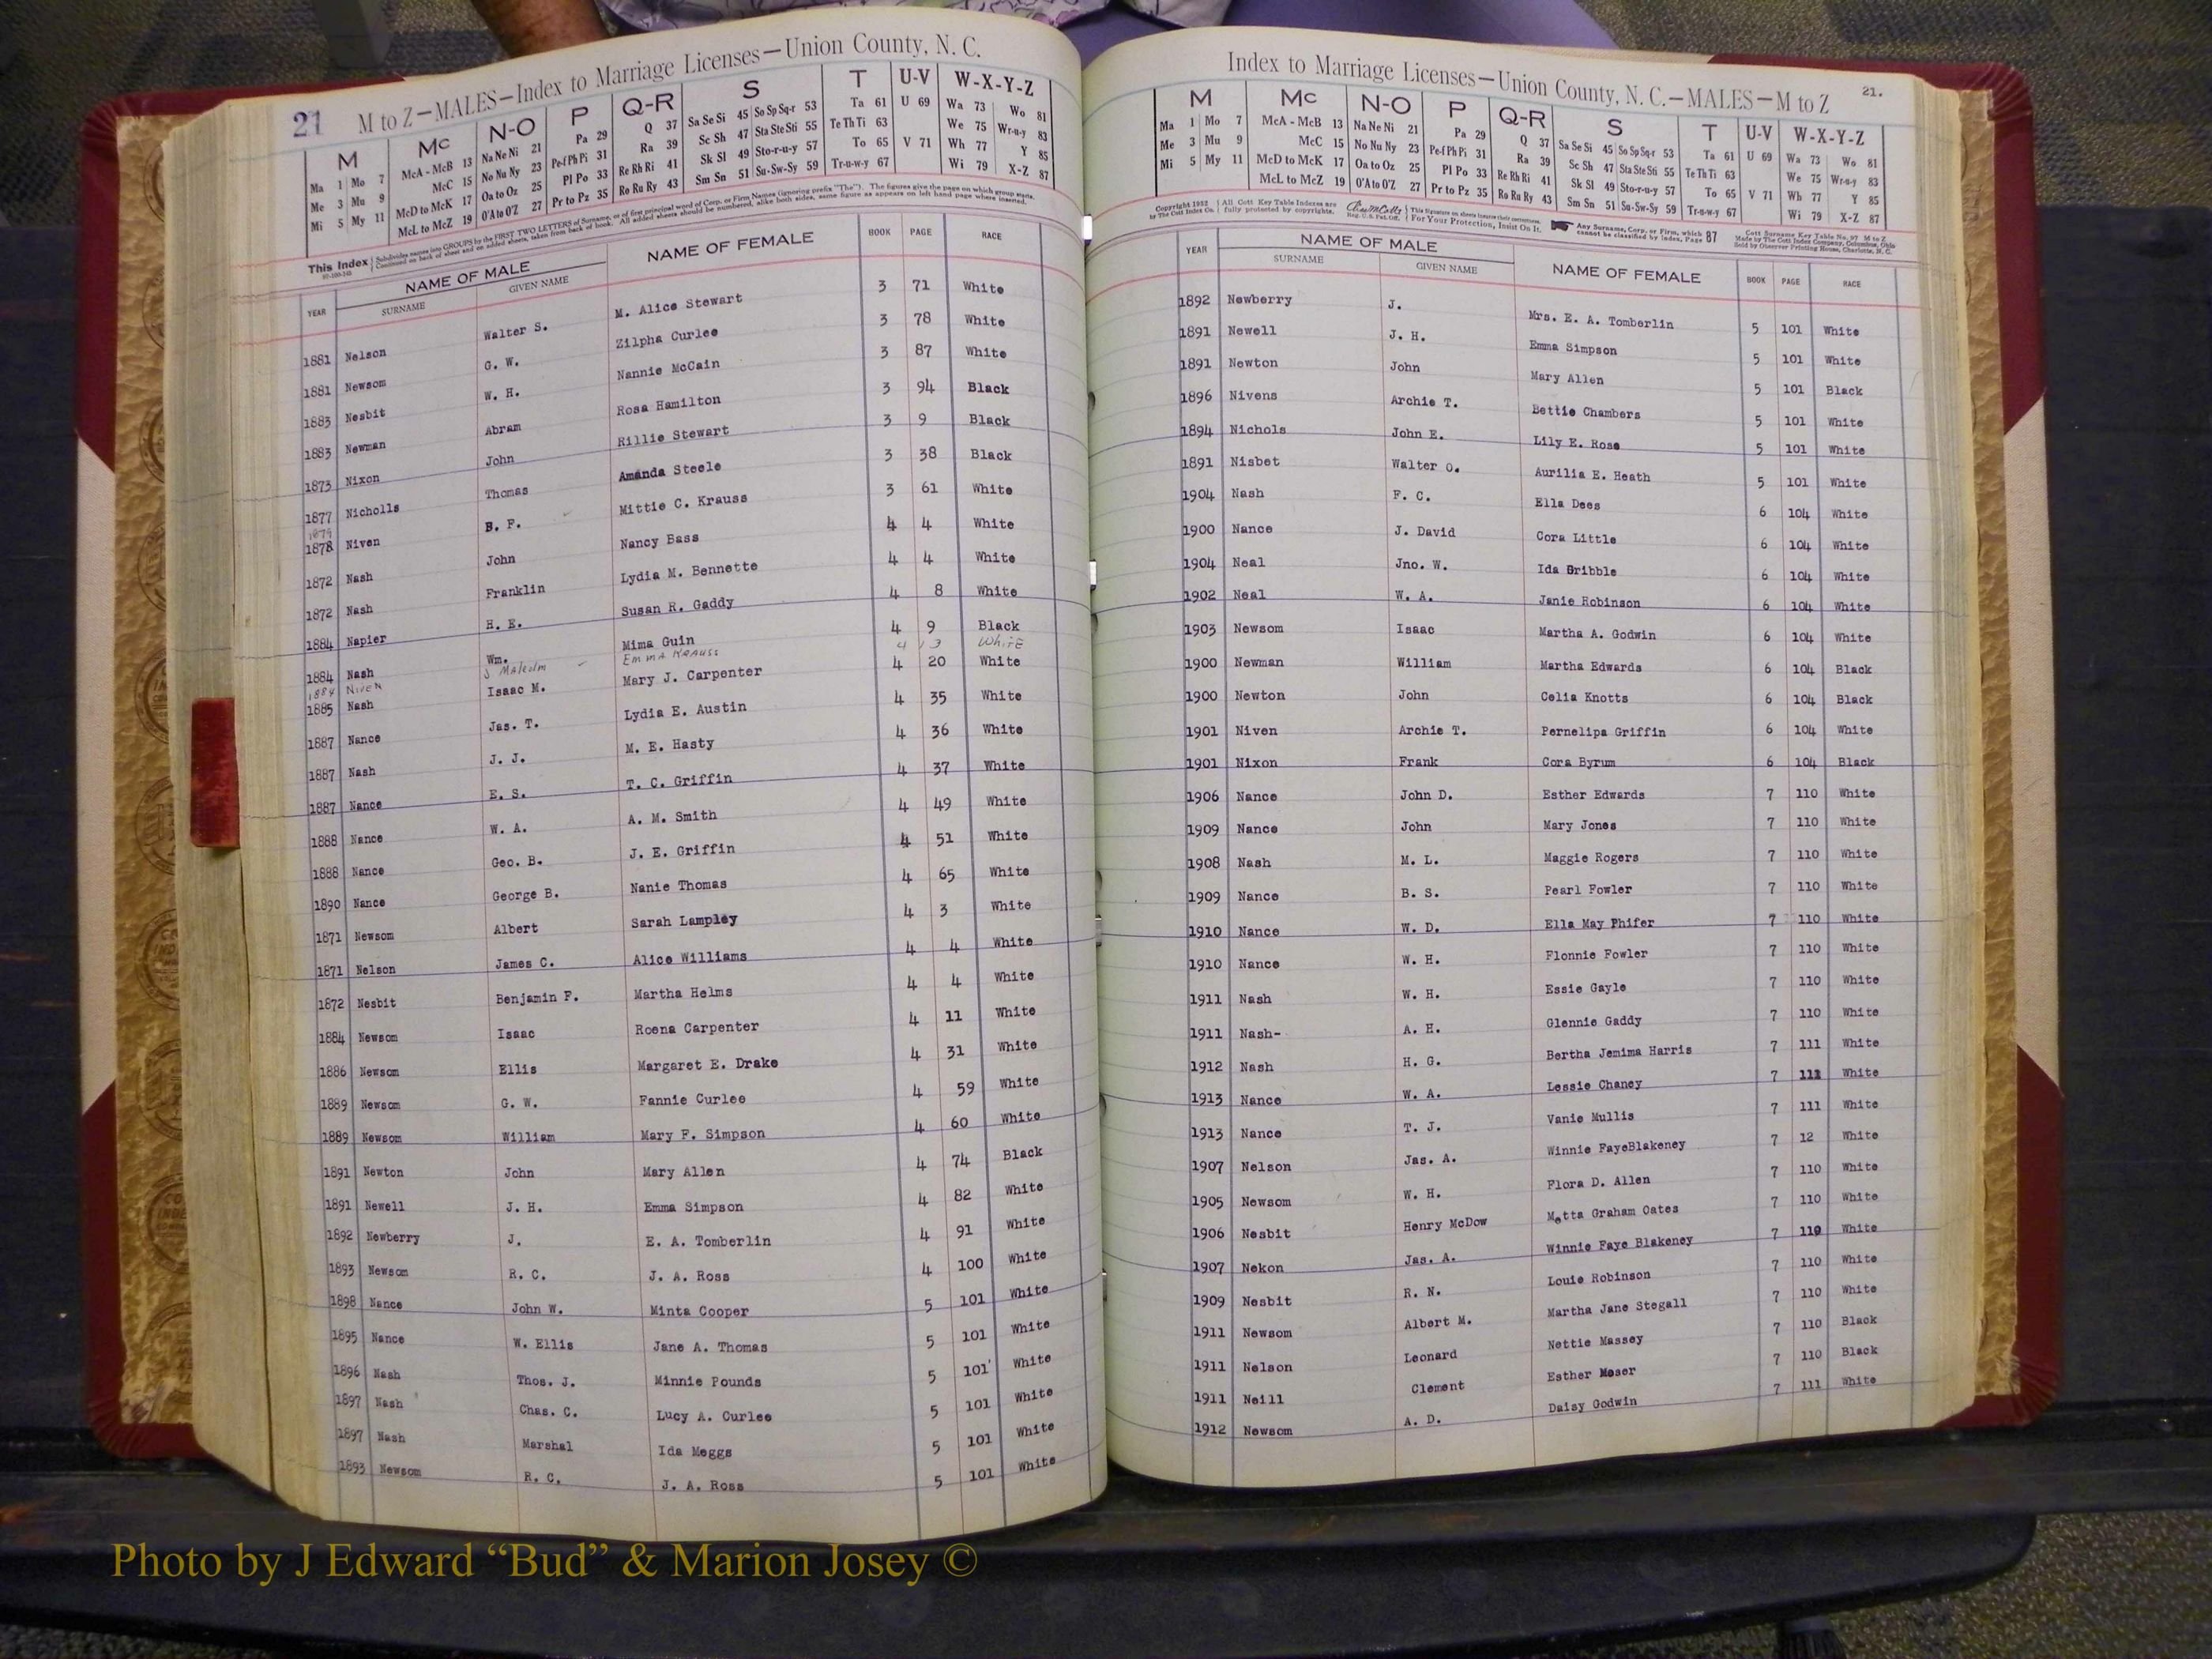 21 M to Z—MALES—Index to Marriage Licenses—Union County, N. C.
M Mc N-O P Q-R S T U-V W-X-Y-Z
Ma 1 Mo 7 McA - McB 13 Na Ne Ni 21 Pa 29 Q 37 Sa Se Si 45 So Sp Sq-r 53 Ta 61 U 69 Wa 73 Wo 81
Me 3 Mu 9 McC 15 No Nu Ny 23 Pe-f Ph Pi 31 Ra 39 Sc Sh 47 Sta Ste Sti 55 Te Th Ti 63 We 75 Wr-u-y 83
Mi 5 My 11 McD to McK 17 Oa to Oz 25 Pl Po 33 Re Rh Ri 41 Sk Sl 49 Sto-r-u-y 57 To 65 V 71 Wh 77 Y 85
McL to McZ 19 O'A to O'Z 27 Pr to Pz 35 Ro Ru Ry 43 Sm Sn 51 Su-Sw-Sy 59 Tr-u-w-y 67 Wi 79 X-Z 87
This Index Subdivides names into GROUPS by the FIRST TWO LETTERS of Surname, or of first principal word of Corp. or Firm Names (ignoring prefix "The"). The figures give the page on which group starts.
Continued on back of sheet and on added sheets, taken from back of book. All added sheets should be numbered, alike both sides, same figure as appears on left hand page where inserted.
YEAR NAME OF MALE SURNAME GIVEN NAME NAME OF FEMALE BOOK PAGE RACE
1881 Nelson Walter S. M. Alice Stewart 3 71 White
1881 Newsom G. W. Zilpha Curlee 3 78 White
1883 Nesbit W. H. Nannie McCain 3 87 White
1883 Newman Abram Rosa Hamilton 3 94 Black
1873 Nixon John Rillie Stewart 3 9 Black
1877 Nicholls Thomas Amanda Steele 3 38 Black
1879
1878 Niven B. F. Mittie C. Krauss 3 61 White
1872 Nash John Nancy Bass 4 4 White
1872 Nash Franklin Lydia M. Bennette 4 4 White
1884 Napier H. E. Susan R. Gaddy 4 8 White
1884 Nash Wm. Mima Guin 4 9 Black
1884 Niven J Malcolm Emma Krauss 4 13 White
1885 Nash Isaac M. Mary J. Carpenter 4 20 White
1887 Nance Jas. T. Lydia E. Austin 4 35 White
1887 Nash J. J. M. E. Hasty 4 36 White
1887 Nance E. S. T. C. Griffin 4 37 White
1888 Nance W. A. A. M. Smith 4 49 White
1888 Nance Geo. B. J. E. Griffin 4 51 White
1890 Nance George B. Nanie Thomas 4 65 White
1871 Newsom Albert Sarah Lampley 4 3 White
1871 Nelson James C. Alice Williams 4 4 White
1872 Nesbit Benjamin F. Martha Helms 4 4 White
1884 Newsom Isaac Roena Carpenter 4 11 White
1886 Newsom Ellis Margaret E. Drake 4 31 White
1889 Newsom G. W. Fannie Curlee 4 59 White
1889 Newsom William Mary F. Simpson 4 60 White
1891 Newton John Mary Allen 4 74 Black
1891 Newell J. H. Emma Simpson 4 82 White
1892 Newberry J. E. A. Tomberlin 4 91 White
1893 Newsom R. C. J. A. Ross 4 100 White
1898 Nance John W. Minta Cooper 5 101 White
1895 Nance W. Ellis Jane A. Thomas 5 101 White
1896 Nash Thos. J. Minnie Pounds 5 101 White
1897 Nash Chas. C. Lucy A. Curlee 5 101 White
1897 Nash Marshal Ida Meggs 5 101 White
1893 Newsom R. C. J. A. Ross 5 101 White
Index to Marriage Licenses—Union County, N. C.—MALES—M to Z 21.
M Mc N-O P Q-R S T U-V W-X-Y-Z
Ma 1 Mo 7 McA - McB 13 Na Ne Ni 21 Pa 29 Q 37 Sa Se Si 45 So Sp Sq-r 53 Ta 61 U 69 Wa 73 Wo 81
Me 3 Mu 9 McC 15 No Nu Ny 23 Pe-f Ph Pi 31 Ra 39 Sc Sh 47 Sta Ste Sti 55 Te Th Ti 63 We 75 Wr-u-y 83
Mi 5 My 11 McD to McK 17 Oa to Oz 25 Pl Po 33 Re Rh Ri 41 Sk Sl 49 Sto-r-u-y 57 To 65 V 71 Wh 77 Y 85
McL to McZ 19 O'A to O'Z 27 Pr to Pz 35 Ro Ru Ry 43 Sm Sn 51 Su-Sw-Sy 59 Tr-u-w-y 67 Wi 79 X-Z 87
Copyright 1932 by The Cott Index Co. All Cott Key Table Indexes are fully protected by copyrights. Reg. U.S. Pat. Off. This Signature on sheets insures their correctness. For Your Protection, Insist On It. Any Surname, Corp. or Firm, which cannot be classified by index, Page 87 Cott Surname Key Table No. 97 M to Z Made by The Cott Index Company, Columbus, Ohio Sold by Observer Printing House, Charlotte, N. C.
YEAR NAME OF MALE SURNAME GIVEN NAME NAME OF FEMALE BOOK PAGE RACE
1892 Newberry J. Mrs. E. A. Tomberlin 5 101 White
1891 Newell J. H. Emma Simpson 5 101 White
1891 Newton John Mary Allen 5 101 Black
1896 Nivens Archie T. Bettie Chambers 5 101 White
1894 Nichols John E. Lily E. Rose 5 101 White
1891 Nisbet Walter O. Aurilia E. Heath 5 101 White
1904 Nash F. C. Ella Dees 6 104 White
1900 Nance J. David Cora Little 6 104 White
1904 Neal Jno. W. Ida Gribble 6 104 White
1902 Neal W. A. Janie Robinson 6 104 White
1903 Newsom Isaac Martha A. Godwin 6 104 White
1900 Newman William Martha Edwards 6 104 Black
1900 Newton John Celia Knotts 6 104 Black
1901 Niven Archie T. Pernelipa Griffin 6 104 White
1901 Nixon Frank Cora Byrum 6 104 Black
1906 Nance John D. Esther Edwards 7 110 White
1909 Nance John Mary Jones 7 110 White
1908 Nash M. L. Maggie Rogers 7 110 White
1909 Nance B. S. Pearl Fowler 7 110 White
1910 Nance W. D. Ella May Phifer 7 110 White
1910 Nance W. H. Flonnie Fowler 7 110 White
1911 Nash W. H. Essie Gayle 7 110 White
1911 Nash- A. H. Glennie Gaddy 7 110 White
1912 Nash H. G. Bertha Jemima Harris 7 111 White
1913 Nance W. A. Lessie Chaney 7 111 White
1913 Nance T. J. Vanie Mullis 7 111 White
1907 Nelson Jas. A. Winnie FayeBlakeney 7 12 White
1905 Newsom W. H. Flora D. Allen 7 110 White
1906 Nesbit Henry McDow Metta Graham Oates 7 110 White
1907 Nekon Jas. A. Winnie Faye Blakeney 7 110 White
1909 Nesbit R. N. Louie Robinson 7 110 White
1911 Newsom Albert M. Martha Jane Stegall 7 110 White
1911 Nelson Leonard Nettie Massey 7 110 Black
1911 Neill Clement Esther Moser 7 110 Black
1912 Newsom A. D. Daisy Godwin 7 111 White
Photo by J Edward “Bud” & Marion Josey ©